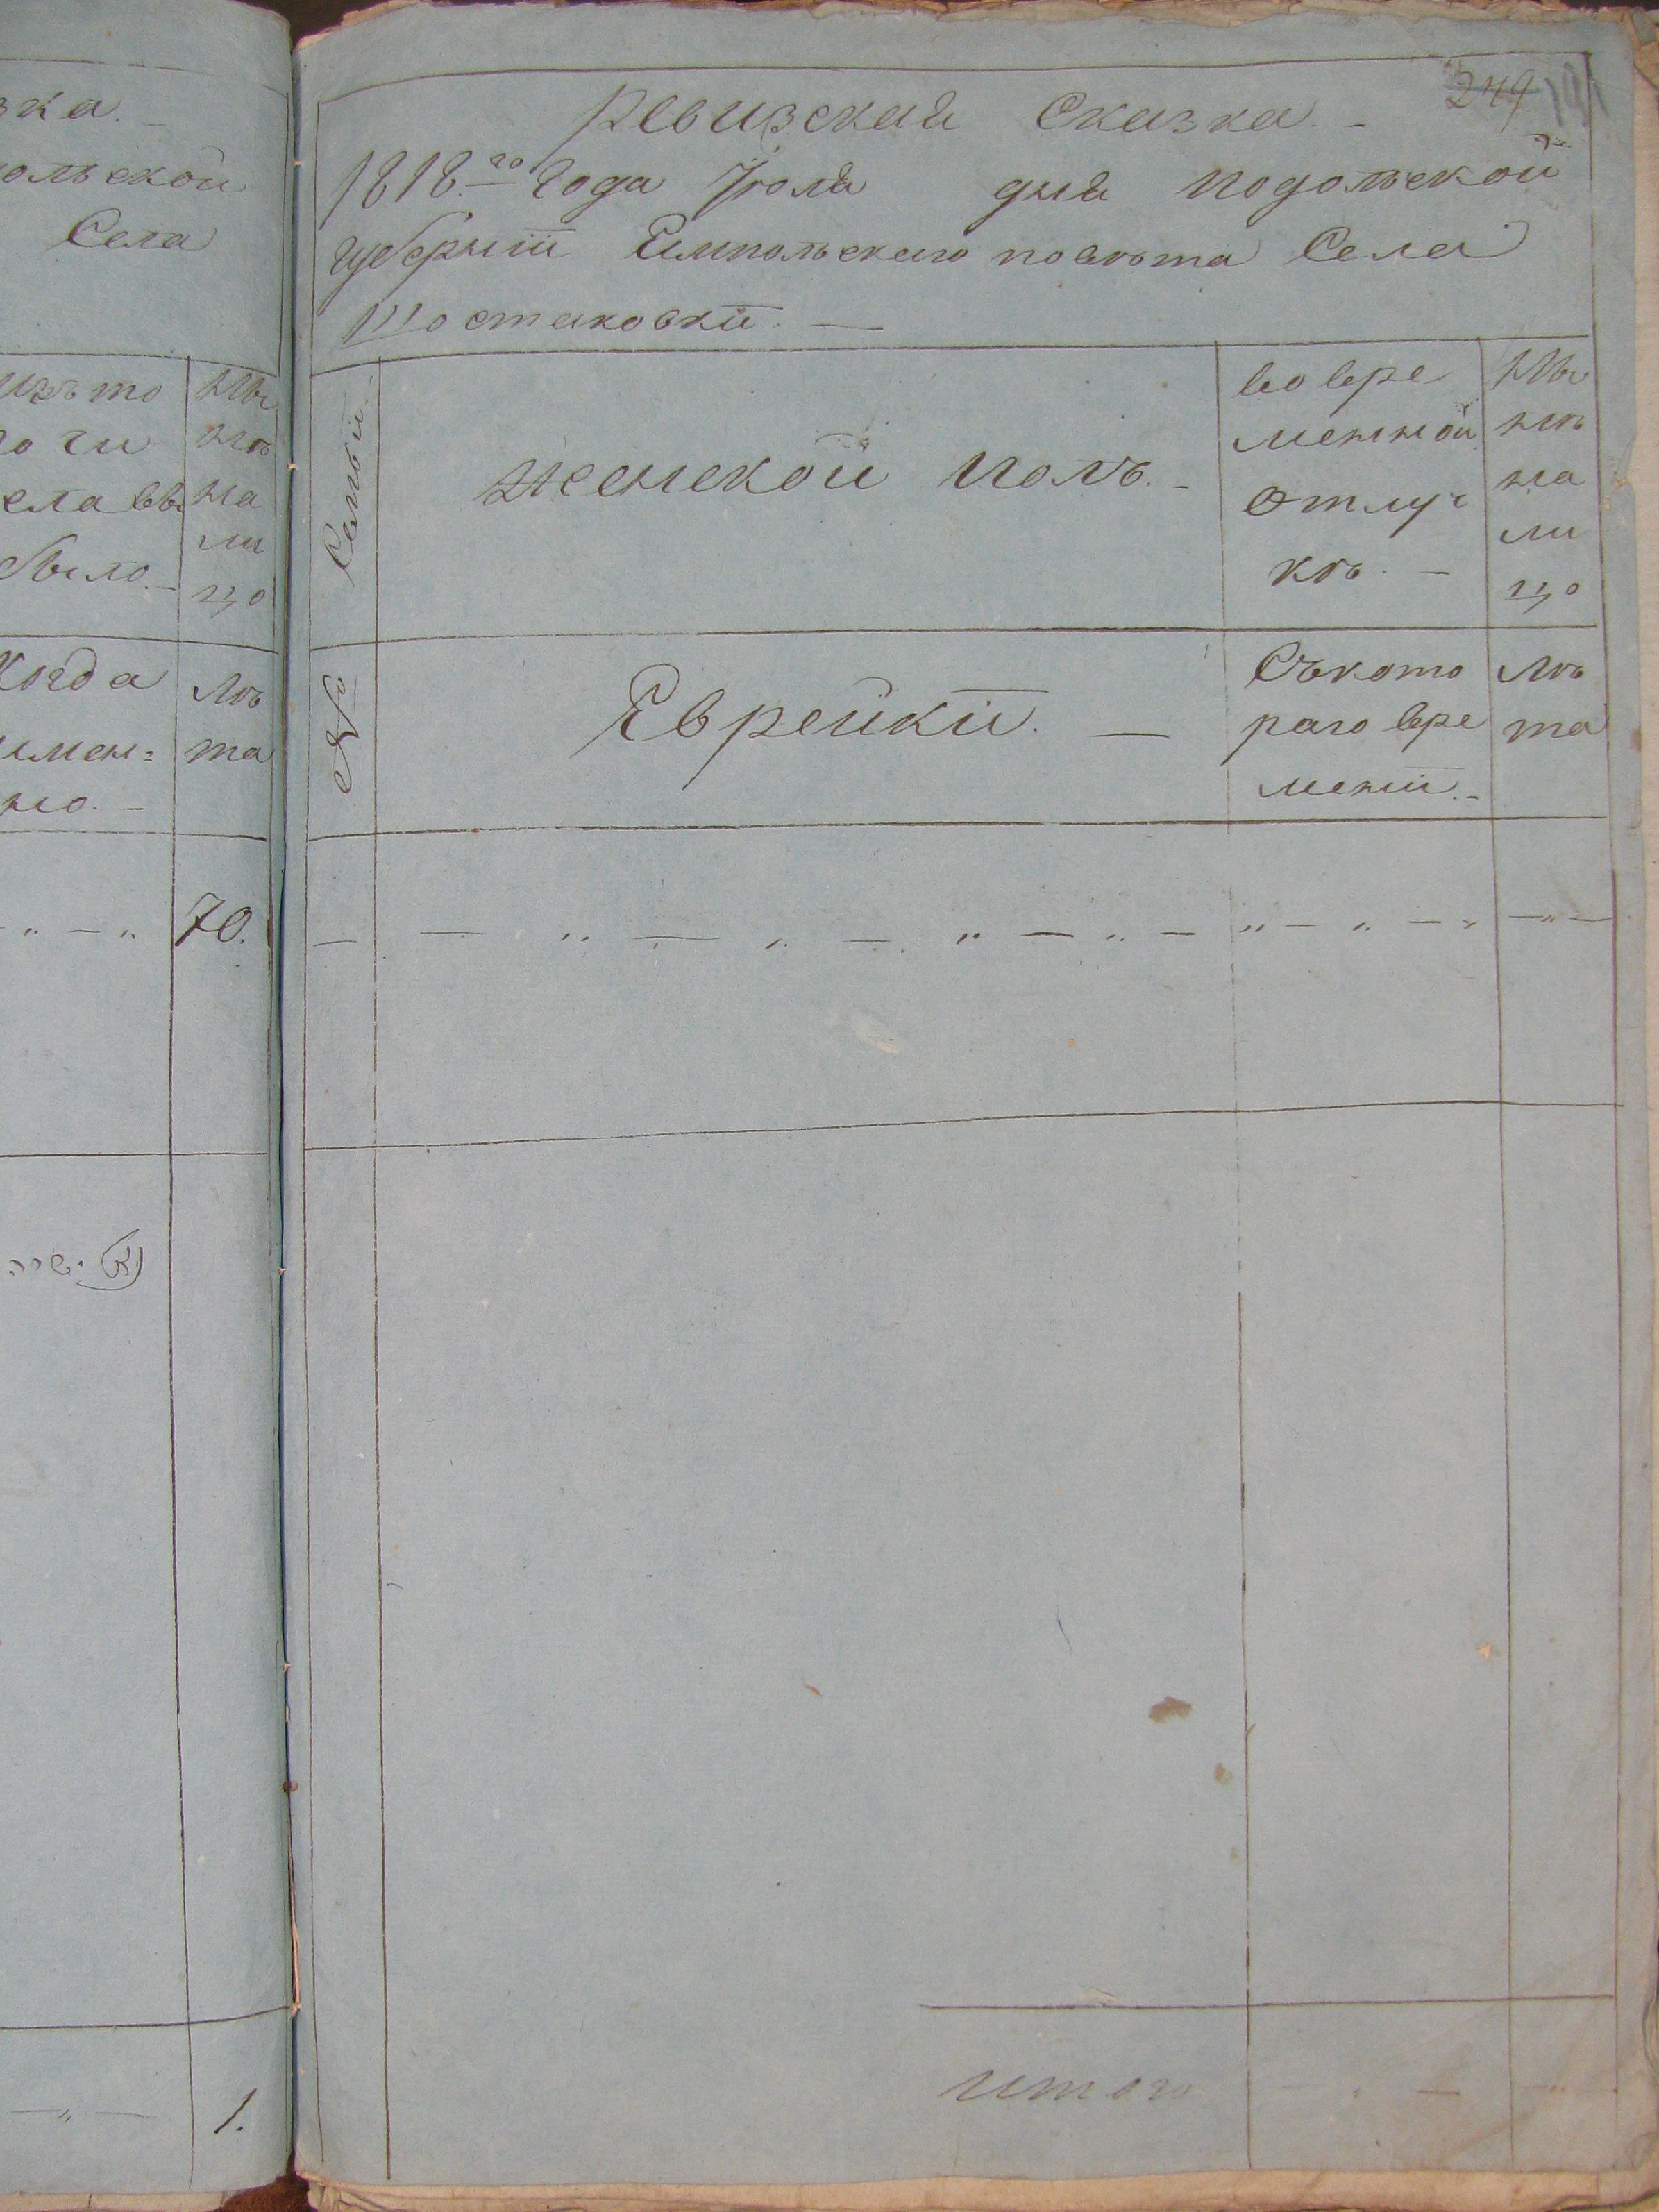 зка.
ольской
Села
изъ то
го чи
сла вы
было.
ны
нѣ
на
ли
цо
Когда
имен=
но.
лѣ
та
70.
1.
249
Ревизская Сказка.
1818.го Года Іюля дня Подольской
губерніи Ямпольскаго повѣта Села
Шостаковки.
Семьи.
женской полъ.
во вре
менной
отлуч
кѣ.
ны
нѣ
на
ли
цо
№
Еврейки.
Съкото
раго вре
мени.
лѣ
та
итого